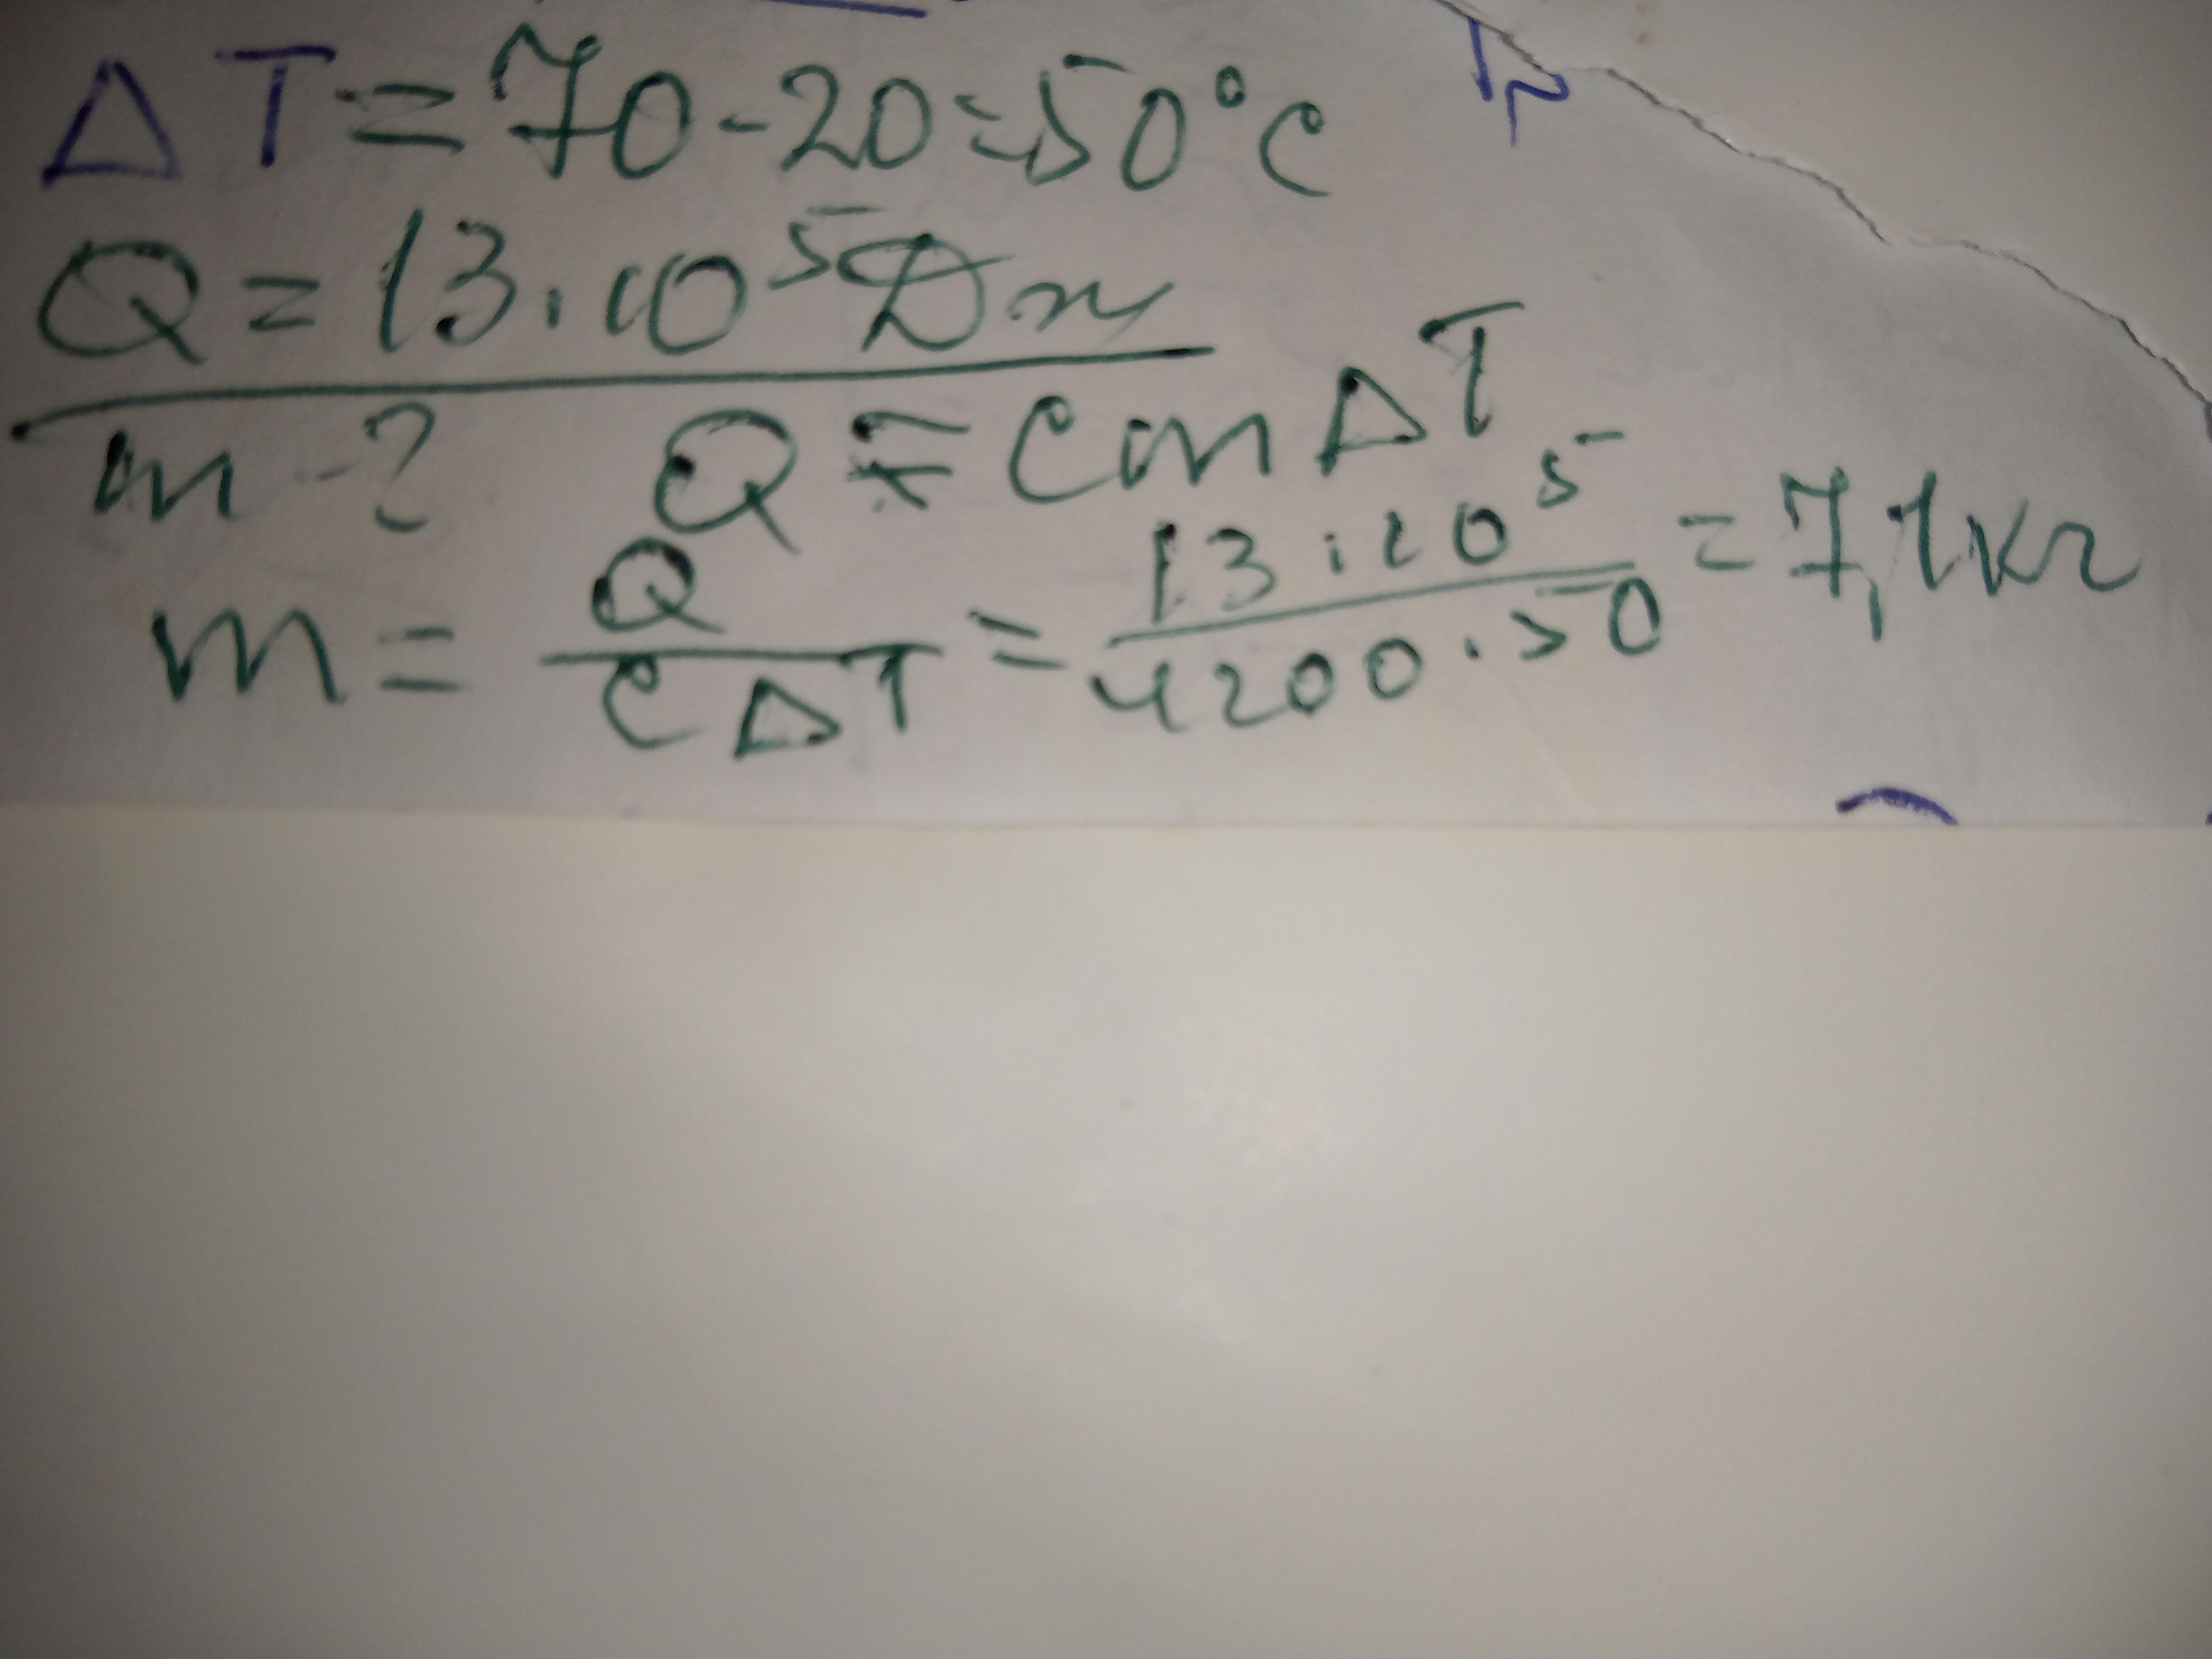 ΔT=70-20=50°C
Q=13·10⁵Дж
m-? Q=cmΔT
m=Q/cΔT=13·10⁵/4200·50=7,1кг